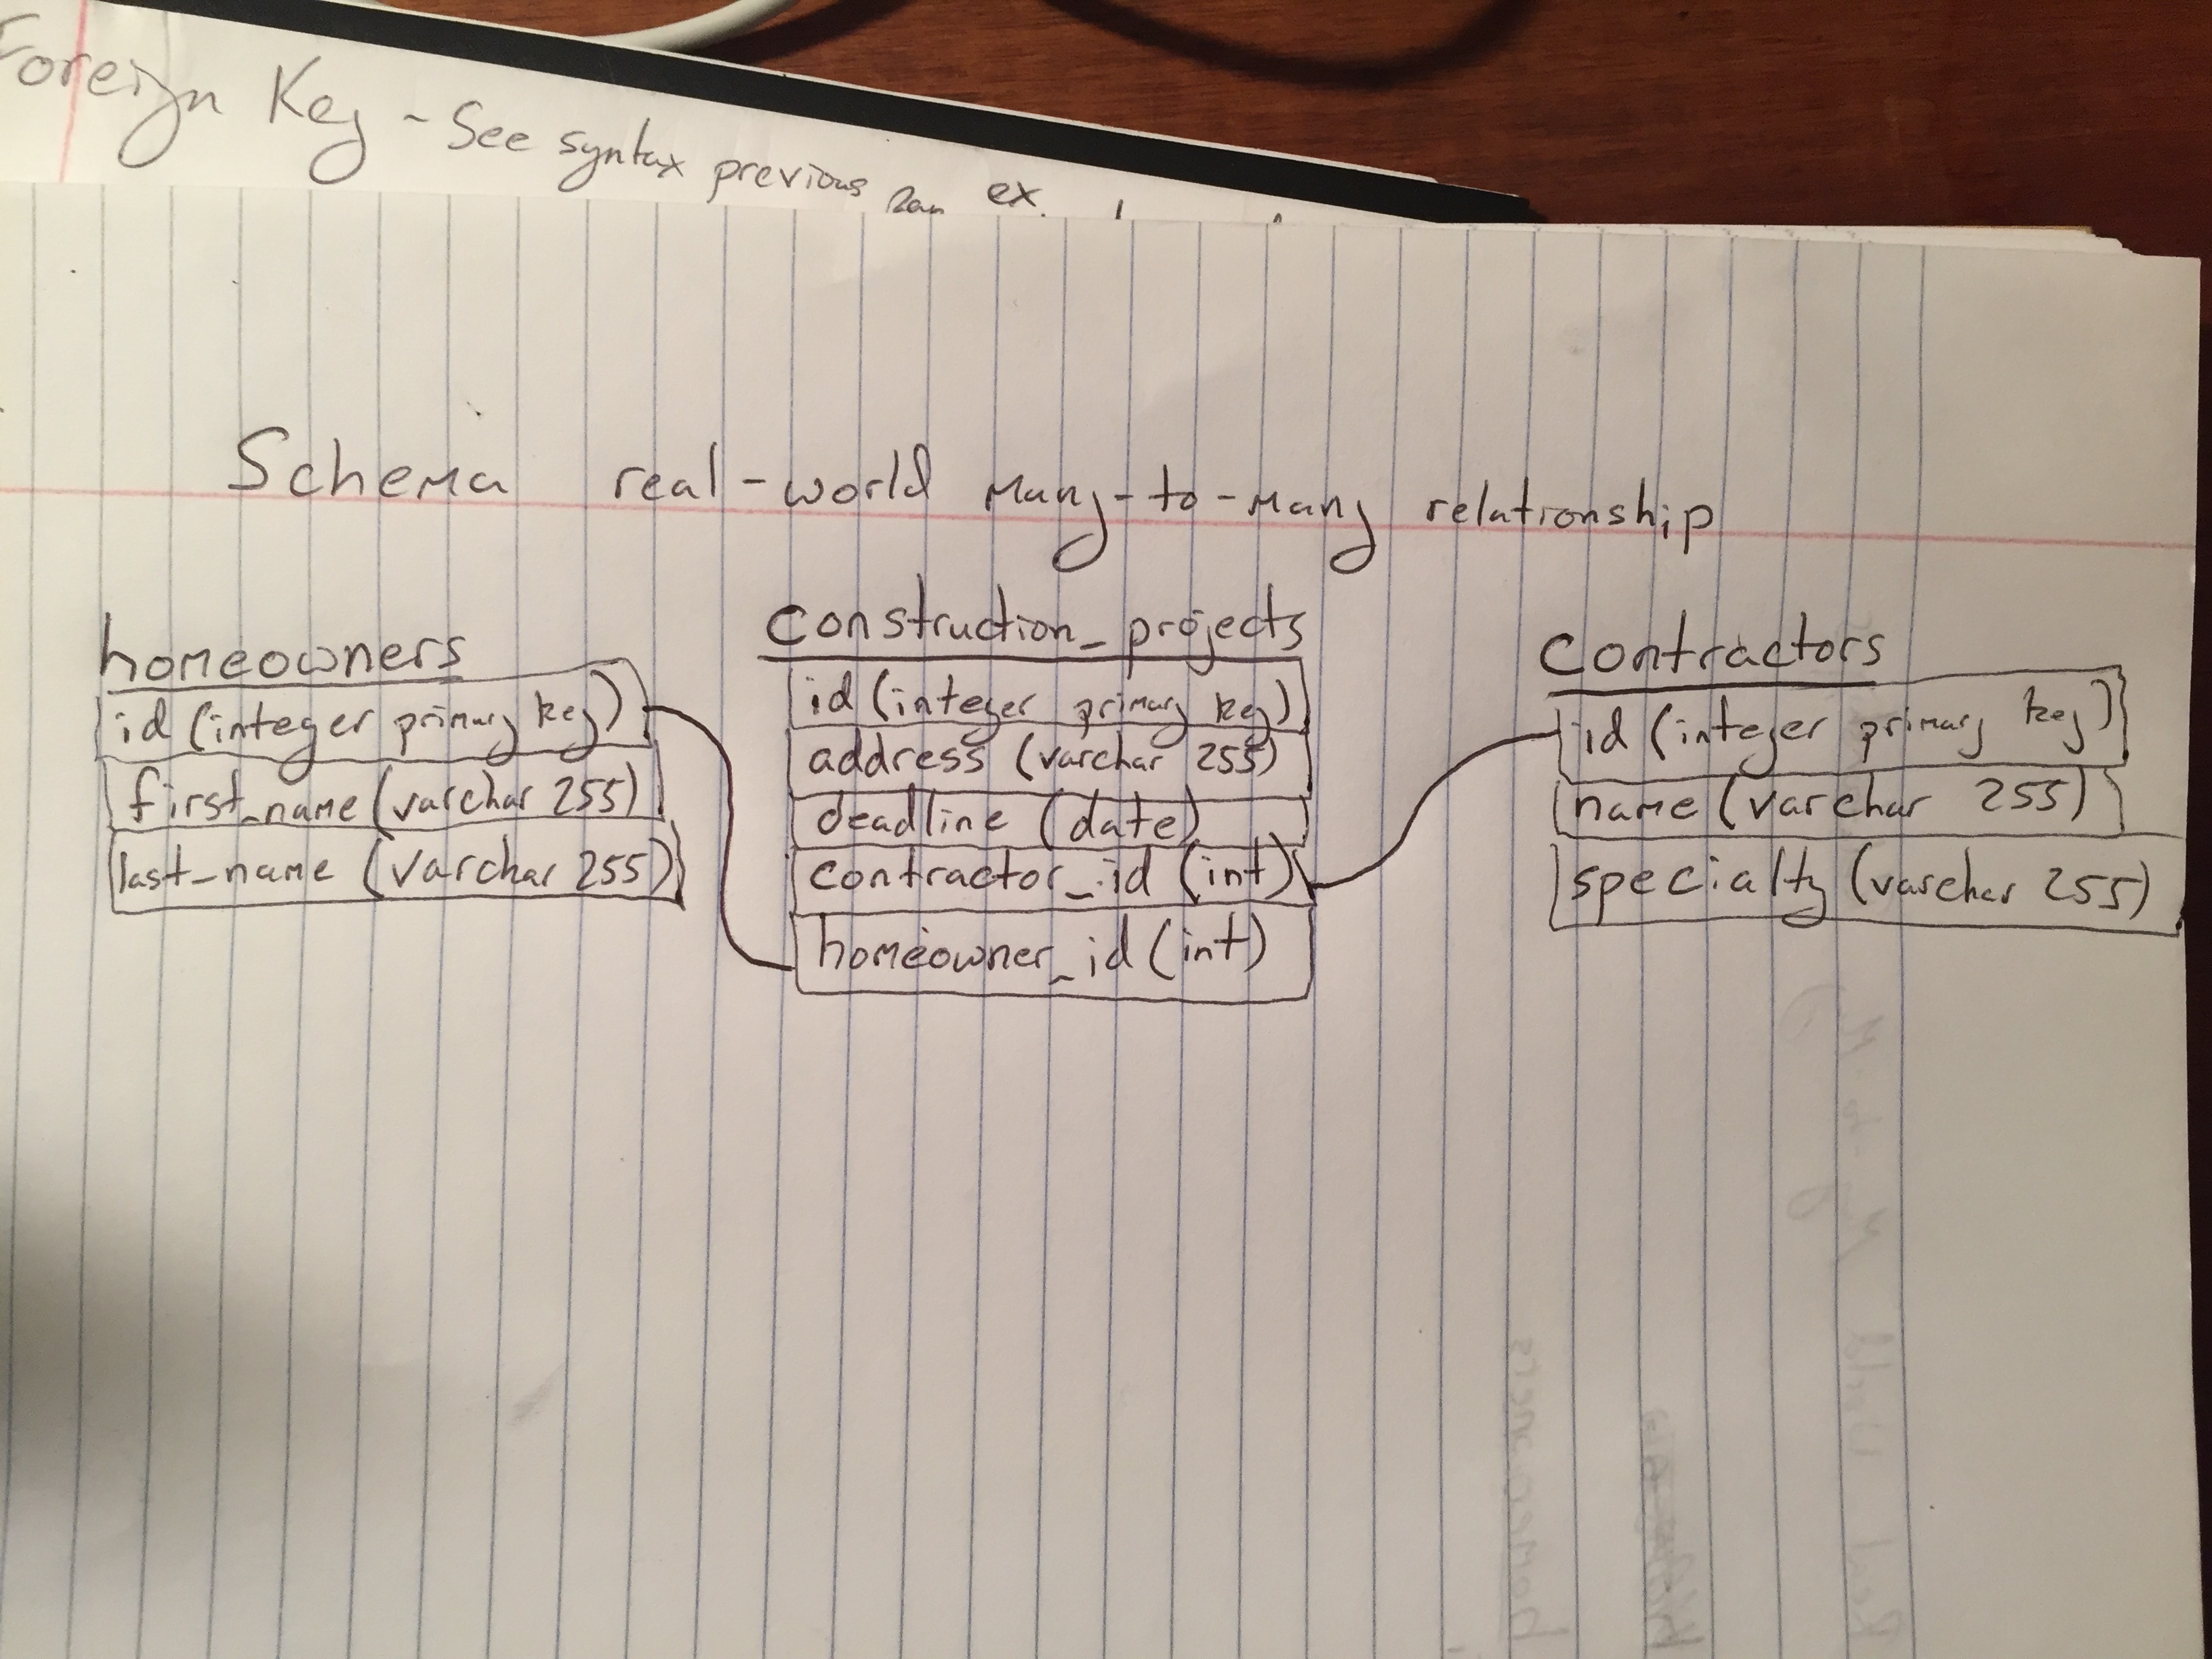 Foreign Key - See syntax previous ex.
Schema real-world many-to-many relationship
homeowners
id (integer primary key)
first_name (varchar 255)
last_name (varchar 255)
construction_projects
id (integer primary key)
address (varchar 255)
deadline (date)
contractor_id (int)
homeowner_id (int)
contractors
id (integer primary key)
name (varchar 255)
specialty (varchar 255)
homeowners